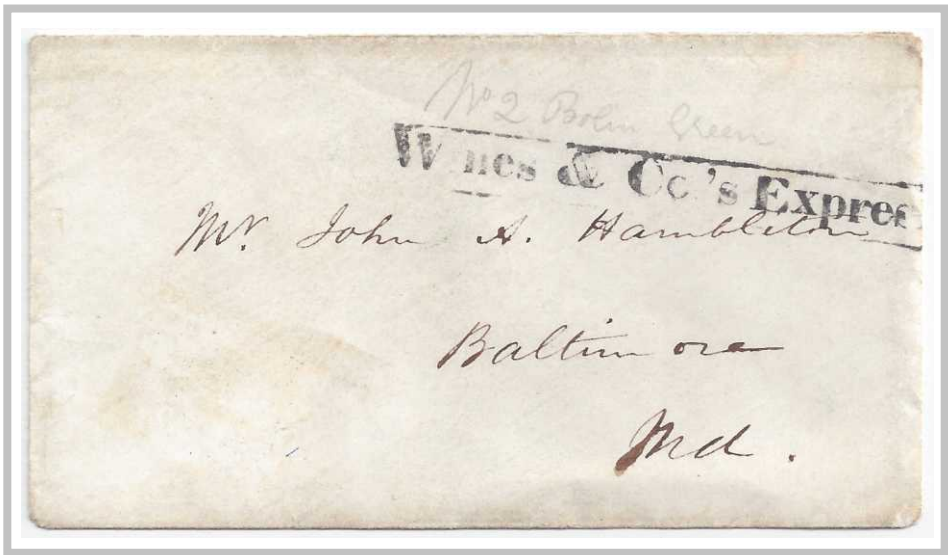 No 2 Bolin Green
W nes & Co's Expres
Mr. John A. Hambleton
Baltimore
Md.